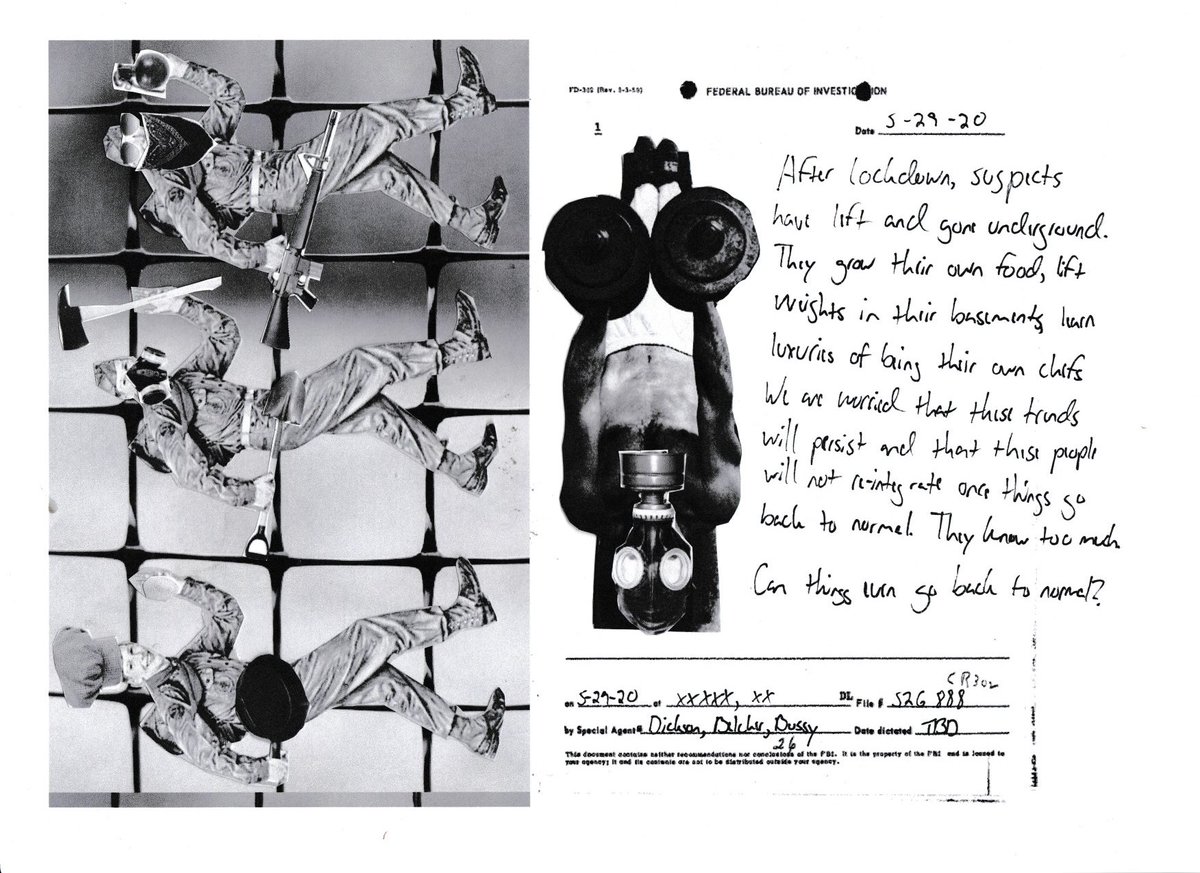 FD-302 (Rev. 3-3-59)
FEDERAL BUREAU OF INVESTIGATION
1
Date 5-29-20
After lockdown, suspects
have left and gone underground.
They grow their own food, lift
weights in their basements, learn
luxuries of being their own chefs
We are worried that these trends
will persist and that these people
will not re-integrate once things go
back to normal. They know too much.
Can things even go back to normal?
CR302
on 5-29-20 at XXXXX, XX DL File # 526 888
by Special Agents Dickson, Belcher, Bussy Date dictated TBD
26
This document contains neither recommendations nor conclusions of the FBI. It is the property of the FBI and is loaned to
your agency; it and its contents are not to be distributed outside your agency.